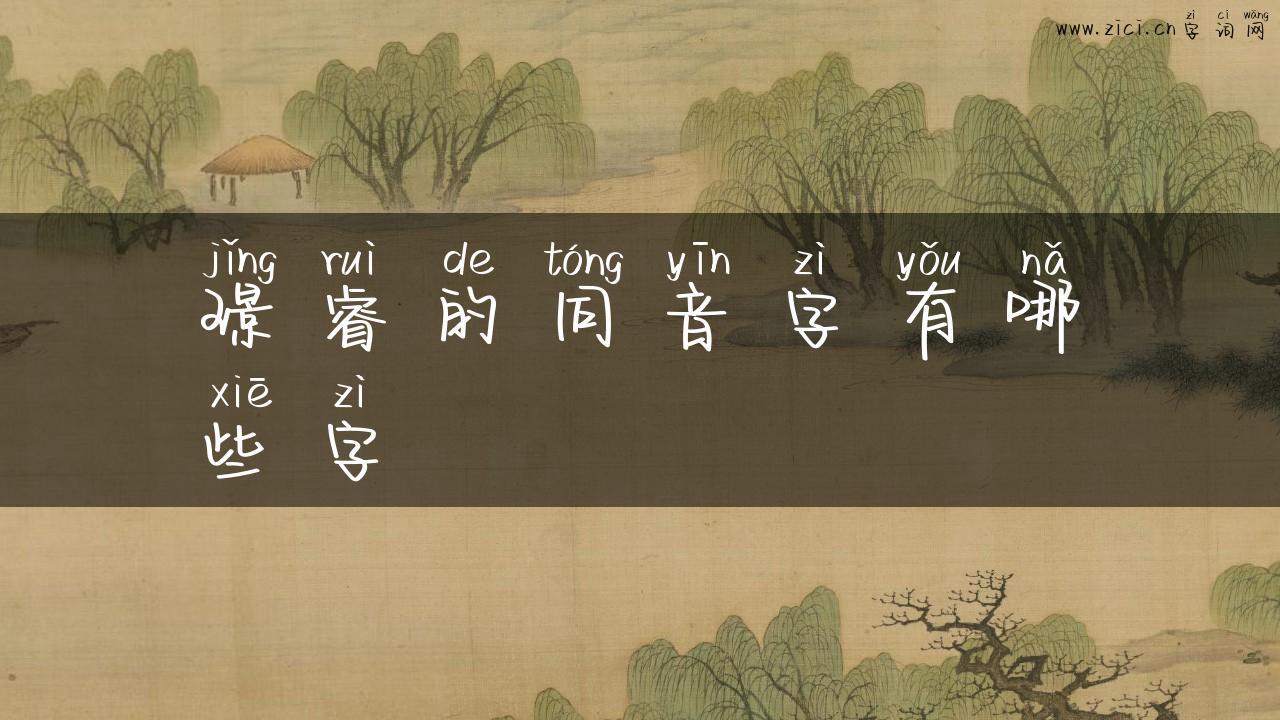 zì cí wǎng
www.zici.cn字词网
jǐng ruì de tóng yīn zì yǒu nǎ
璟睿的同音字有哪
xiē zì
些字